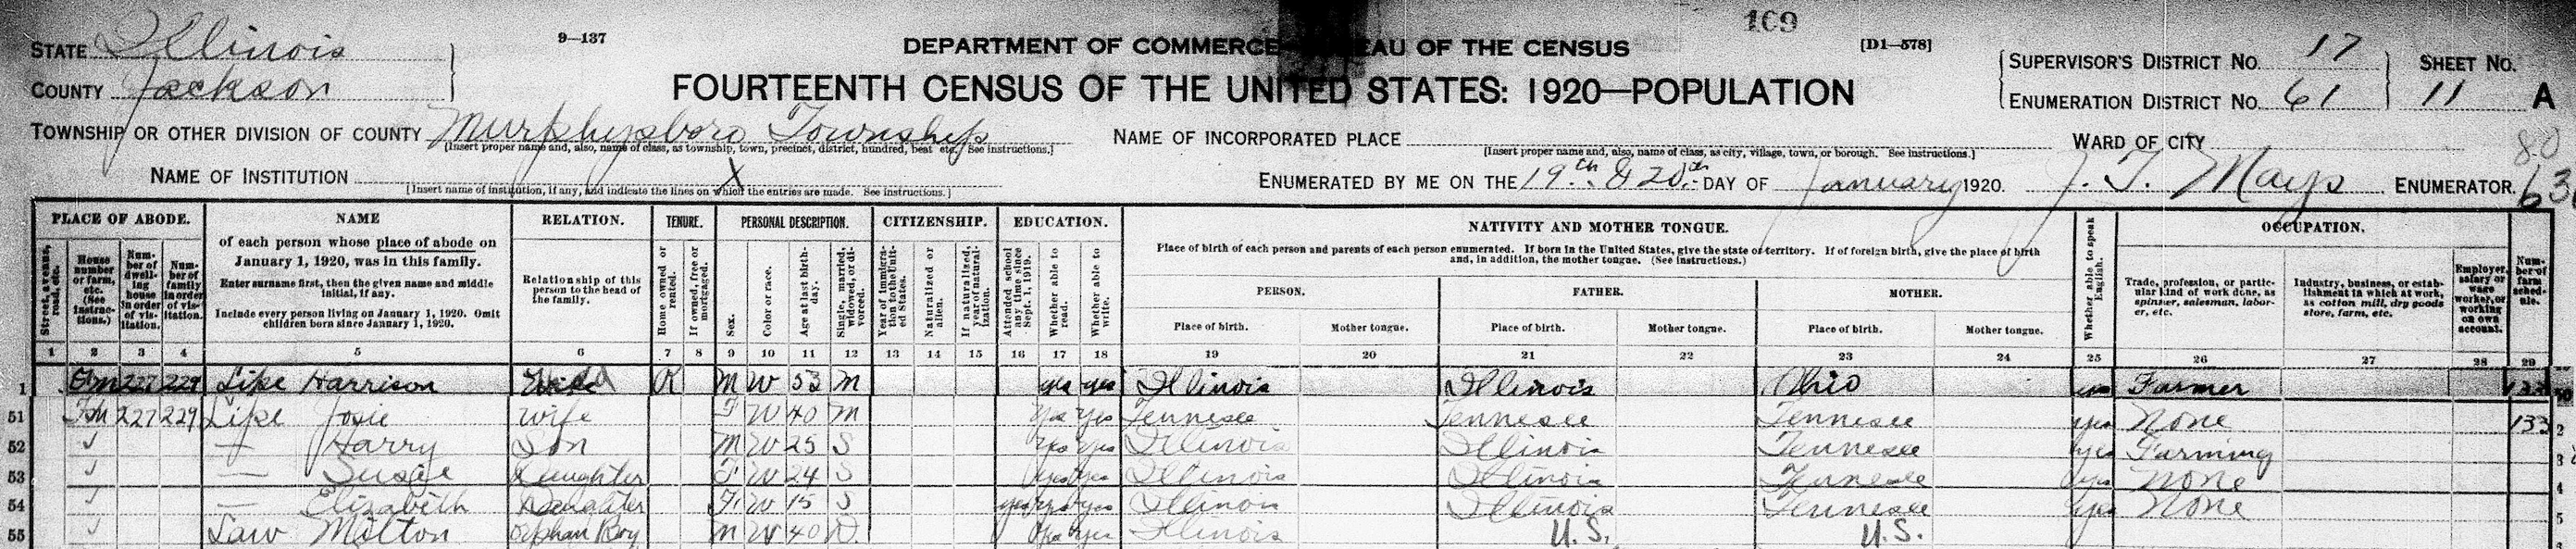 109
STATE Illinois 9—137 DEPARTMENT OF COMMERCE— EAU OF THE CENSUS [D1—578] SUPERVISOR'S DISTRICT NO. 17 SHEET NO.
COUNTY Jackson FOURTEENTH CENSUS OF THE UNITED STATES: 1920—POPULATION ENUMERATION DISTRICT NO. 61 11 A
TOWNSHIP OR OTHER DIVISION OF COUNTY Murphysboro Township NAME OF INCORPORATED PLACE WARD OF CITY 80
[Insert proper name and, also, name of class, as township, town, precinct, district, hundred, beat etc. See instructions.] [Insert proper name and, also, name of class, as city, village, town, or borough. See instructions.]
NAME OF INSTITUTION X ENUMERATED BY ME ON THE 19th & 20th DAY OF January 1920. J. T. Mays ENUMERATOR.
[Insert name of institution, if any, and indicate the lines on which the entries are made. See instructions.]
PLACE OF ABODE. NAME RELATION. TENURE. PERSONAL DESCRIPTION. CITIZENSHIP. EDUCATION. NATIVITY AND MOTHER TONGUE. OCCUPATION.
Street, avenue, road, etc.
House number or farm, etc. (See instructions.)
Number of dwelling house in order of visitation.
Number of family in order of visitation.
of each person whose place of abode on January 1, 1920, was in this family.
Enter surname first, then the given name and middle initial, if any.
Include every person living on January 1, 1920. Omit children born since January 1, 1920.
Relationship of this person to the head of the family.
Home owned or rented.
If owned, free or mortgaged.
Sex.
Color or race.
Age at last birthday.
Single, married, widowed, or divorced.
Year of immigration to the United States.
Naturalized or alien.
If naturalized, year of naturalization.
Attended school any time since Sept. 1, 1919.
Whether able to read.
Whether able to write.
Place of birth of each person and parents of each person enumerated. If born in the United States, give the state or territory. If of foreign birth, give the place of birth
and, in addition, the mother tongue. (See instructions.)
PERSON. FATHER. MOTHER.
Place of birth. Mother tongue. Place of birth. Mother tongue. Place of birth. Mother tongue.
Whether able to speak English.
Trade, profession, or particular kind of work done, as spinner, salesman, laborer, etc.
Industry, business, or establishment in which at work, as cotton mill, dry goods store, farm, etc.
Employer, salary or wage worker, or working on own account.
Number of farm schedule.
1 2 3 4 5 6 7 8 9 10 11 12 13 14 15 16 17 18 19 20 21 22 23 24 25 26 27 28 29
1 Fm 227 229 Lipe Harrison R M W 53 M yes yes Illinois Illinois Ohio yes Farmer
51 Fm 227 229 Lipe Josie Wife F W 40 M yes yes Tennesee Tennesee Tennesee yes None 133 2
52 — Harry Son M W 25 S yes yes Illinois Illinois Tennesee yes Farming 3
53 — Susie Daughter F W 24 S yes yes Illinois Illinois Tennesee yes None 4
54 — Elizabeth Daughter F W 15 S yes yes yes Illinois Illinois Tennesee yes None 5
55 Law Milton Orphan Boy M W 40 D yes yes Illinois U.S. U.S.